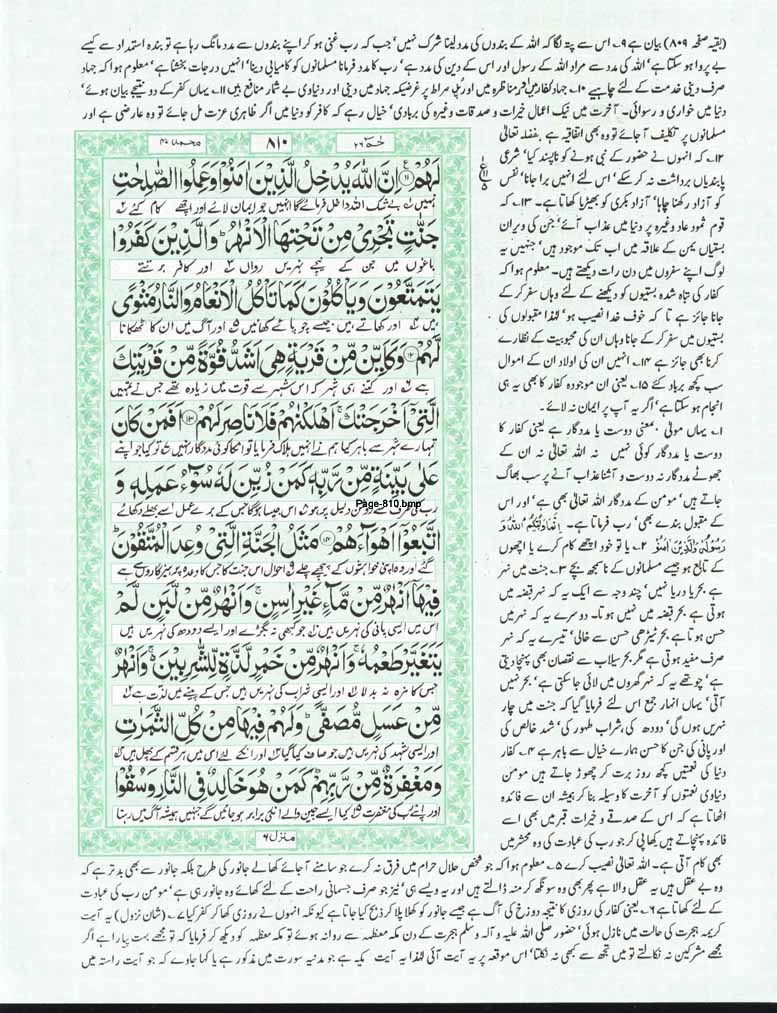 (بقیہ صفحہ ۸۰۹) بیان ہے ۹۔ اس سے پتہ لگا کہ اللہ کے بندوں کی مدد لینا شرک نہیں' جب کہ رب غنی ہو کر اپنے بندوں سے مدد مانگ رہا ہے تو بندہ استمداد سے کیسے
بے پروا ہو سکتا ہے' اللہ کی مدد سے مراد اللہ کے رسول اور اس کے دین کی مدد ہے' رب کا مدد فرمانا مسلمانوں کو کامیابی دینا' انہیں درجات بخشنا ہے' معلوم ہوا کہ جہاد
صرف دینی خدمت کے لئے چاہیے ۱۰۔ جہاد کفار میں اور مناظرہ میں اور پل صراط پر غرضیکہ جہاد میں دینی اور دنیاوی بے شمار منافع ہیں ۱۱۔ یہاں کفر کے دو نتیجے بیان ہوئے'
دنیا میں خواری و رسوائی۔ آخرت میں نیک اعمال خیرات و صدقات وغیرہ کی بربادی' خیال رہے کہ کافر کو دنیا میں اگر ظاہری عزت مل جائے تو وہ عارضی ہے اور
مسلمانوں پر تکلیف آ جائے تو وہ بھی اتفاقیہ ہے۔ بفضلہ تعالیٰ
۱۲۔ کہ انہوں نے حضور کے نبی ہونے کو ناپسند کیا' شرعی
پابندیاں برداشت نہ کر سکے' اس لئے انہیں برا جانا' نفس
کو آزاد رکھنا چاہا' آزاد بکری کو بھیڑیا کھاتا ہے۔ ۱۳۔ کہ
قوم ثمود عاد وغیرہ پر دنیا میں عذاب آئے' جن کی ویران
بستیاں یمن کے علاقہ میں اب تک موجود ہیں' جنہیں یہ
لوگ اپنے سفروں میں دن رات دیکھتے ہیں۔ معلوم ہوا کہ
کفار کی تباہ شدہ بستیوں کو دیکھنے کے لئے وہاں سفر کر کے
جانا جائز ہے تا کہ خوف خدا نصیب ہو' لہٰذا مقبولوں کی
بستیوں میں سفر کر کے جانا وہاں ان کی محبوبیت کے نظارے
کرنا بھی جائز ہے ۱۴۔ انہیں ان کی اولاد ان کے اموال
سب کچھ برباد کئے ۱۵۔ یعنی ان موجودہ کفار کا بھی یہ ہی
انجام ہو سکتا ہے' اگر یہ آپ پر ایمان نہ لائے۔
۱۔ یہاں مولیٰ بمعنی دوست یا مددگار ہے یعنی کفار کا
دوست یا مددگار کوئی نہیں نہ اللہ تعالیٰ نہ ان کے
جھوٹے مددگار نہ دوست و آشنا عذاب آنے پر سب بھاگ
جاتے ہیں' مومن کے مددگار اللہ تعالیٰ بھی ہے' اور اس
کے مقبول بندے بھی' رب فرماتا ہے۔ اِنَّمَا وَلِیُّکُمُ اللّٰہُ وَ
رَسُوْلُہٗ وَالَّذِیْنَ اٰمَنُوْا ۲۔ یا تو خود اچھے کام کرے یا اچھوں
کے تابع ہو جیسے مسلمانوں کے ناسمجھ بچے ۳۔ جنت میں نہر
ہے بحر یا دریا نہیں' چند وجہ سے ایک یہ کہ نہر قبضہ میں
ہوتی ہے بحر قبضہ میں نہیں ہوتا۔ دوسرے یہ کہ نہر میں
حسن ہوتا ہے بحر ٹیڑھی حسن سے خالی' تیسرے یہ کہ نہر
صرف مفید ہوتی ہے مگر بحر سیلاب سے نقصان بھی پہنچا دیتی
ہے' چوتھے یہ کہ نہر گھروں میں لائی جا سکتی ہے' بحر نہیں
آتی' یہاں انہار جمع اس لئے فرمایا گیا کہ جنت میں چار
نہریں ہوں گی' دودھ کی' شراب طہور کی' شہد خالص کی
اور پانی کی جن کا حسن ہمارے خیال سے باہر ہے ۴۔ کفار
دنیا کی نعمتیں کچھ روز برت کر چھوڑ جاتے ہیں مومن
دنیاوی نعمتوں کو آخرت کا وسیلہ بنا کر ہمیشہ ان سے فائدہ
اٹھاتا ہے کہ اس کے صدقے و خیرات قبر میں بھی اسے
فائدہ پہنچاتے ہیں کھا پی کر جو رب کی عبادت کی وہ محشر میں
حٰمٓ ۲۶
۸۱۰
محمد ۴۷
لَهُمْ ۝۱۱ اِنَّ اللّٰهَ يُدْخِلُ الَّذِيْنَ اٰمَنُوْا وَعَمِلُوا الصّٰلِحٰتِ
نہیں ۱ بے شک اللہ داخل فرمائے گا انہیں جو ایمان لائے اور اچھے کام کئے ۲
جَنّٰتٍ تَجْرِيْ مِنْ تَحْتِهَا الْاَنْهٰرُ ؕ وَالَّذِيْنَ كَفَرُوْا
باغوں میں جن کے نیچے نہریں رواں ۳ اور کافر برتتے
يَتَمَتَّعُوْنَ وَيَاْكُلُوْنَ كَمَا تَاْكُلُ الْاَنْعَامُ وَالنَّارُ مَثْوًى
ہیں ۴ اور کھاتے ہیں جیسے چوپائے کھائیں ۵ اور آگ میں ان کا ٹھکانا
لَّهُمْ ۝۱۲ وَكَاَيِّنْ مِّنْ قَرْيَةٍ هِيَ اَشَدُّ قُوَّةً مِّنْ قَرْيَتِكَ
ہے ۶ اور کتنے ہی شہر کہ اس شہر سے قوت میں زیادہ تھے جس نے تمہیں
الَّتِيْٓ اَخْرَجَتْكَ ۚ اَهْلَكْنٰهُمْ فَلَا نَاصِرَ لَهُمْ ۝۱۳ اَفَمَنْ كَانَ
تمہارے شہر سے باہر کیا ہم نے انہیں ہلاک فرمایا تو ان کا کوئی مددگار نہیں تو کیا جو اپنے
عَلٰى بَيِّنَةٍ مِّنْ رَّبِّهٖ كَمَنْ زُيِّنَ لَهٗ سُوْٓءُ عَمَلِهٖ وَ
رب کی طرف سے روشن دلیل پر ہو اس جیسا ہوگا جس کے برے عمل اسے بھلے دکھائے
Page-810.bmp
اتَّبَعُوْٓا اَهْوَآءَهُمْ ۝۱۴ مَثَلُ الْجَنَّةِ الَّتِيْ وُعِدَ الْمُتَّقُوْنَ ؕ
گئے اور وہ اپنی خواہشوں کے پیچھے چلے احوال اس جنت کا جس کا وعدہ پرہیزگاروں سے ہے
فِيْهَآ اَنْهٰرٌ مِّنْ مَّآءٍ غَيْرِ اٰسِنٍ ۚ وَاَنْهٰرٌ مِّنْ لَّبَنٍ لَّمْ
اس میں ایسی پانی کی نہریں ہیں جو کبھی نہ بگڑے اور ایسے دودھ کی نہریں ہیں
يَتَغَيَّرْ طَعْمُهٗ ۚ وَاَنْهٰرٌ مِّنْ خَمْرٍ لَّذَّةٍ لِّلشّٰرِبِيْنَ ۚ وَاَنْهٰرٌ
جس کا مزہ نہ بدلا اور ایسی شراب کی نہریں ہیں جس کے پینے میں لذت ہے
مِّنْ عَسَلٍ مُّصَفًّى ؕ وَلَهُمْ فِيْهَا مِنْ كُلِّ الثَّمَرٰتِ
اور ایسی شہد کی نہریں ہیں جو صاف کیا گیا اور انکے لئے اس میں ہر قسم کے پھل ہیں
وَمَغْفِرَةٌ مِّنْ رَّبِّهِمْ ؕ كَمَنْ هُوَ خَالِدٌ فِي النَّارِ وَسُقُوْا
اور اپنے رب کی مغفرت کیا ایسے چین والے ان کی برابر ہو جائیں گے جنہیں ہمیشہ آگ میں رہنا
منزل ۶
بھی کام آتی ہے۔ اللہ تعالیٰ نصیب کرے ۵۔ معلوم ہوا کہ جو شخص حلال حرام میں فرق نہ کرے جو سامنے آ جائے کھا لے جانور کی طرح بلکہ جانور سے بھی بدتر ہے کہ
وہ بے عقل ہیں یہ عقل والا ہے پھر بھی وہ سونگھ کر منہ ڈالتے ہیں اور یہ ویسے ہی' نیز جو صرف جسمانی راحت کے لئے کھائے وہ جانور ہی ہے' مومن رب کی عبادت
کے لئے کھاتا ہے ۶۔ یعنی کفار کی روزی کا نتیجہ دوزخ کی آگ ہے جیسے جانور کو کھلا پلا کر ذبح کیا جاتا ہے کیونکہ انہوں نے روزی کھا کر کفر کیا ۷۔ (شان نزول) یہ آیت
کریمہ ہجرت کی حالت میں نازل ہوئی' حضور صلی اللہ علیہ و آلہ وسلم ہجرت کے دن مکہ معظمہ سے روانہ ہوئے تو مکہ معظمہ کو دیکھ کر فرمایا کہ تو مجھے بہت پیارا ہے اگر
مجھے مشرکین نہ نکالتے تو میں تجھ سے کبھی نہ نکلتا' اس موقعہ پر یہ آیت آئی لہٰذا یہ آیت مکیہ ہے جو مدنیہ سورت میں مذکور ہے یا کہا جاوے کہ جو آیت راستہ میں